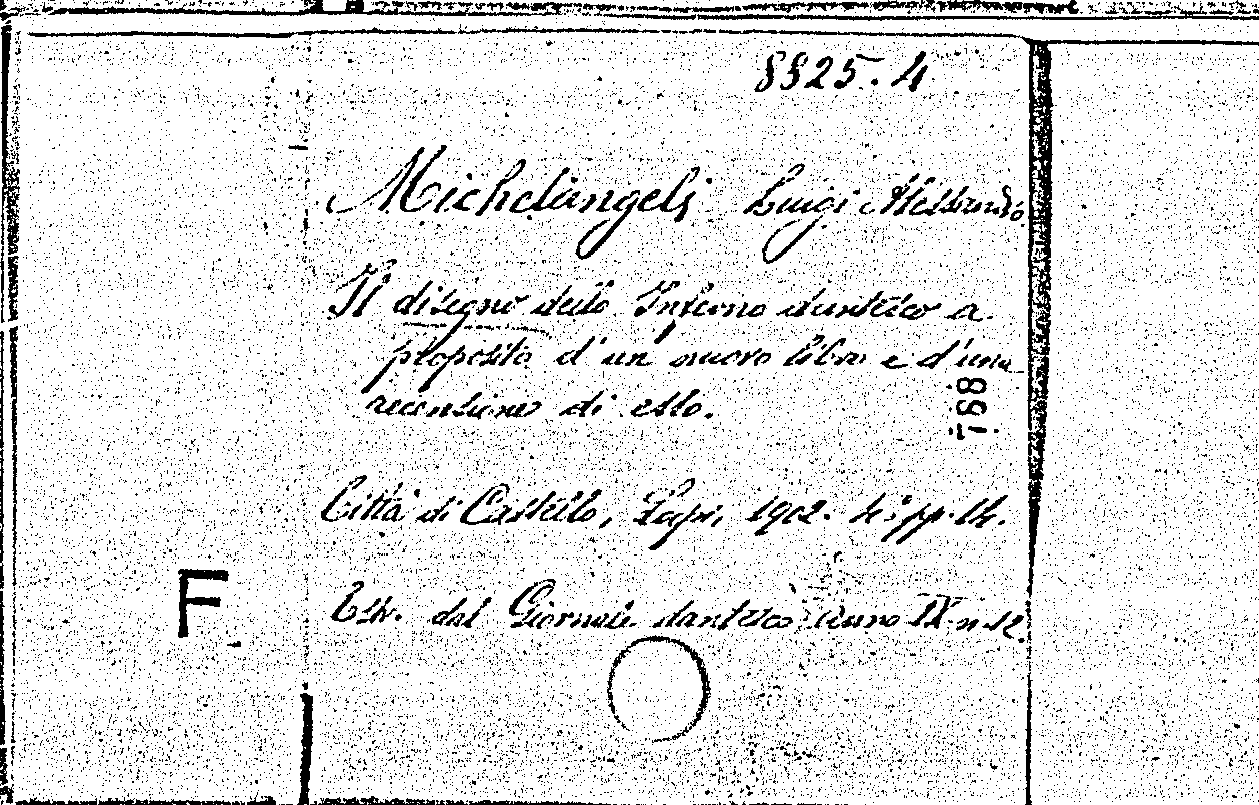 8825.4
Michelangeli Luigi Alessandro
Il disegno dello Inferno dantesco a
proposito d'un nuovo libro e d'una
recensione di esso.
768
Città di Castello, Lapi, 1902. 4° pp. 14.
F
Estr. dal Giornale dantesco anno IX n. 12.